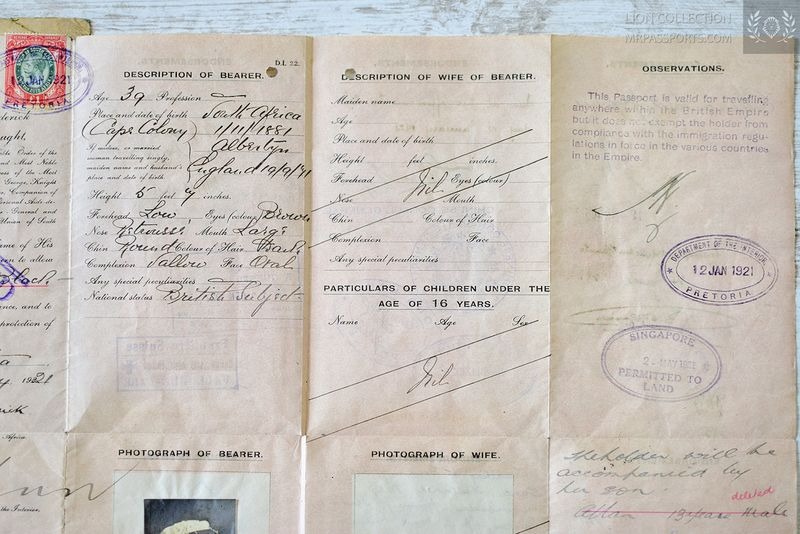 LION COLLECTION
MRPASSPORTS.COM
12 JAN 1921
PRETORIA
Order of the
Most Noble
of the Most
George, Knight
Companion of
Personal Aide-de
General and
Union of South
of His
to allow
and to
protection of
Africa
the Interior.
D.I. 22.
DESCRIPTION OF BEARER.
Age 39 Profession —
Place and date of birth South Africa
(Cape Colony) 1/11/1881
If widow, or married
woman travelling singly,
maiden name and husband's
place and date of birth.
Albertyn
England
Height 5 feet 7 inches.
Forehead Low, Eyes (colour) Brown
Nose Retrousse Mouth Large
Chin Round Colour of Hair Dark
Complexion Sallow Face Oval
Any special peculiarities —
National status British Subject
PHOTOGRAPH OF BEARER.
DESCRIPTION OF WIFE OF BEARER.
Maiden name
Age
Place and date of birth
Height feet inches.
Forehead Eyes (colour)
Nil
Nose Mouth
Chin Colour of Hair
Complexion Face
Any special peculiarities
PARTICULARS OF CHILDREN UNDER THE
AGE OF 16 YEARS.
Name Age Sex
Nil
PHOTOGRAPH OF WIFE.
OBSERVATIONS.
This Passport is valid for travelling
anywhere within the British Empire
but it does not exempt the holder from
compliance with the immigration regu-
lations in force in the various countries
in the Empire.
DEPARTMENT OF THE INTERIOR
12 JAN 1921
PRETORIA
SINGAPORE
PERMITTED TO
LAND
The holder will be
accompanied by
her son.
deleted
13 years Male